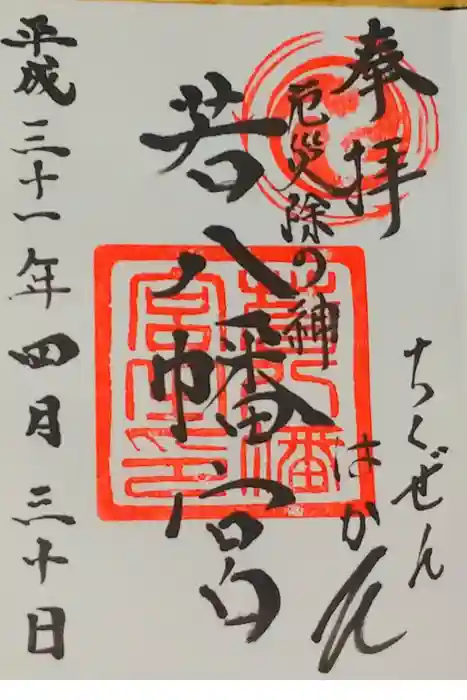 奉拝
ちくぜん
はかた
厄災除の神
若八幡宮
若八幡
宮之印
平成三十一年四月三十日